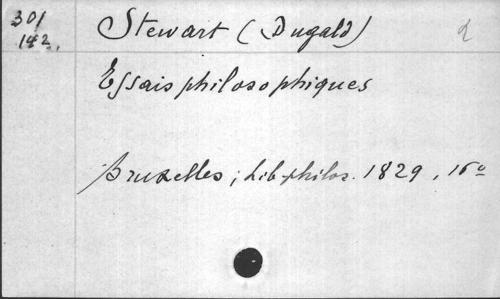 301
142.
Stewart (Dugald)
2
Essais philosophiques
Bruxelles, Lib. philos. 1829, 16º